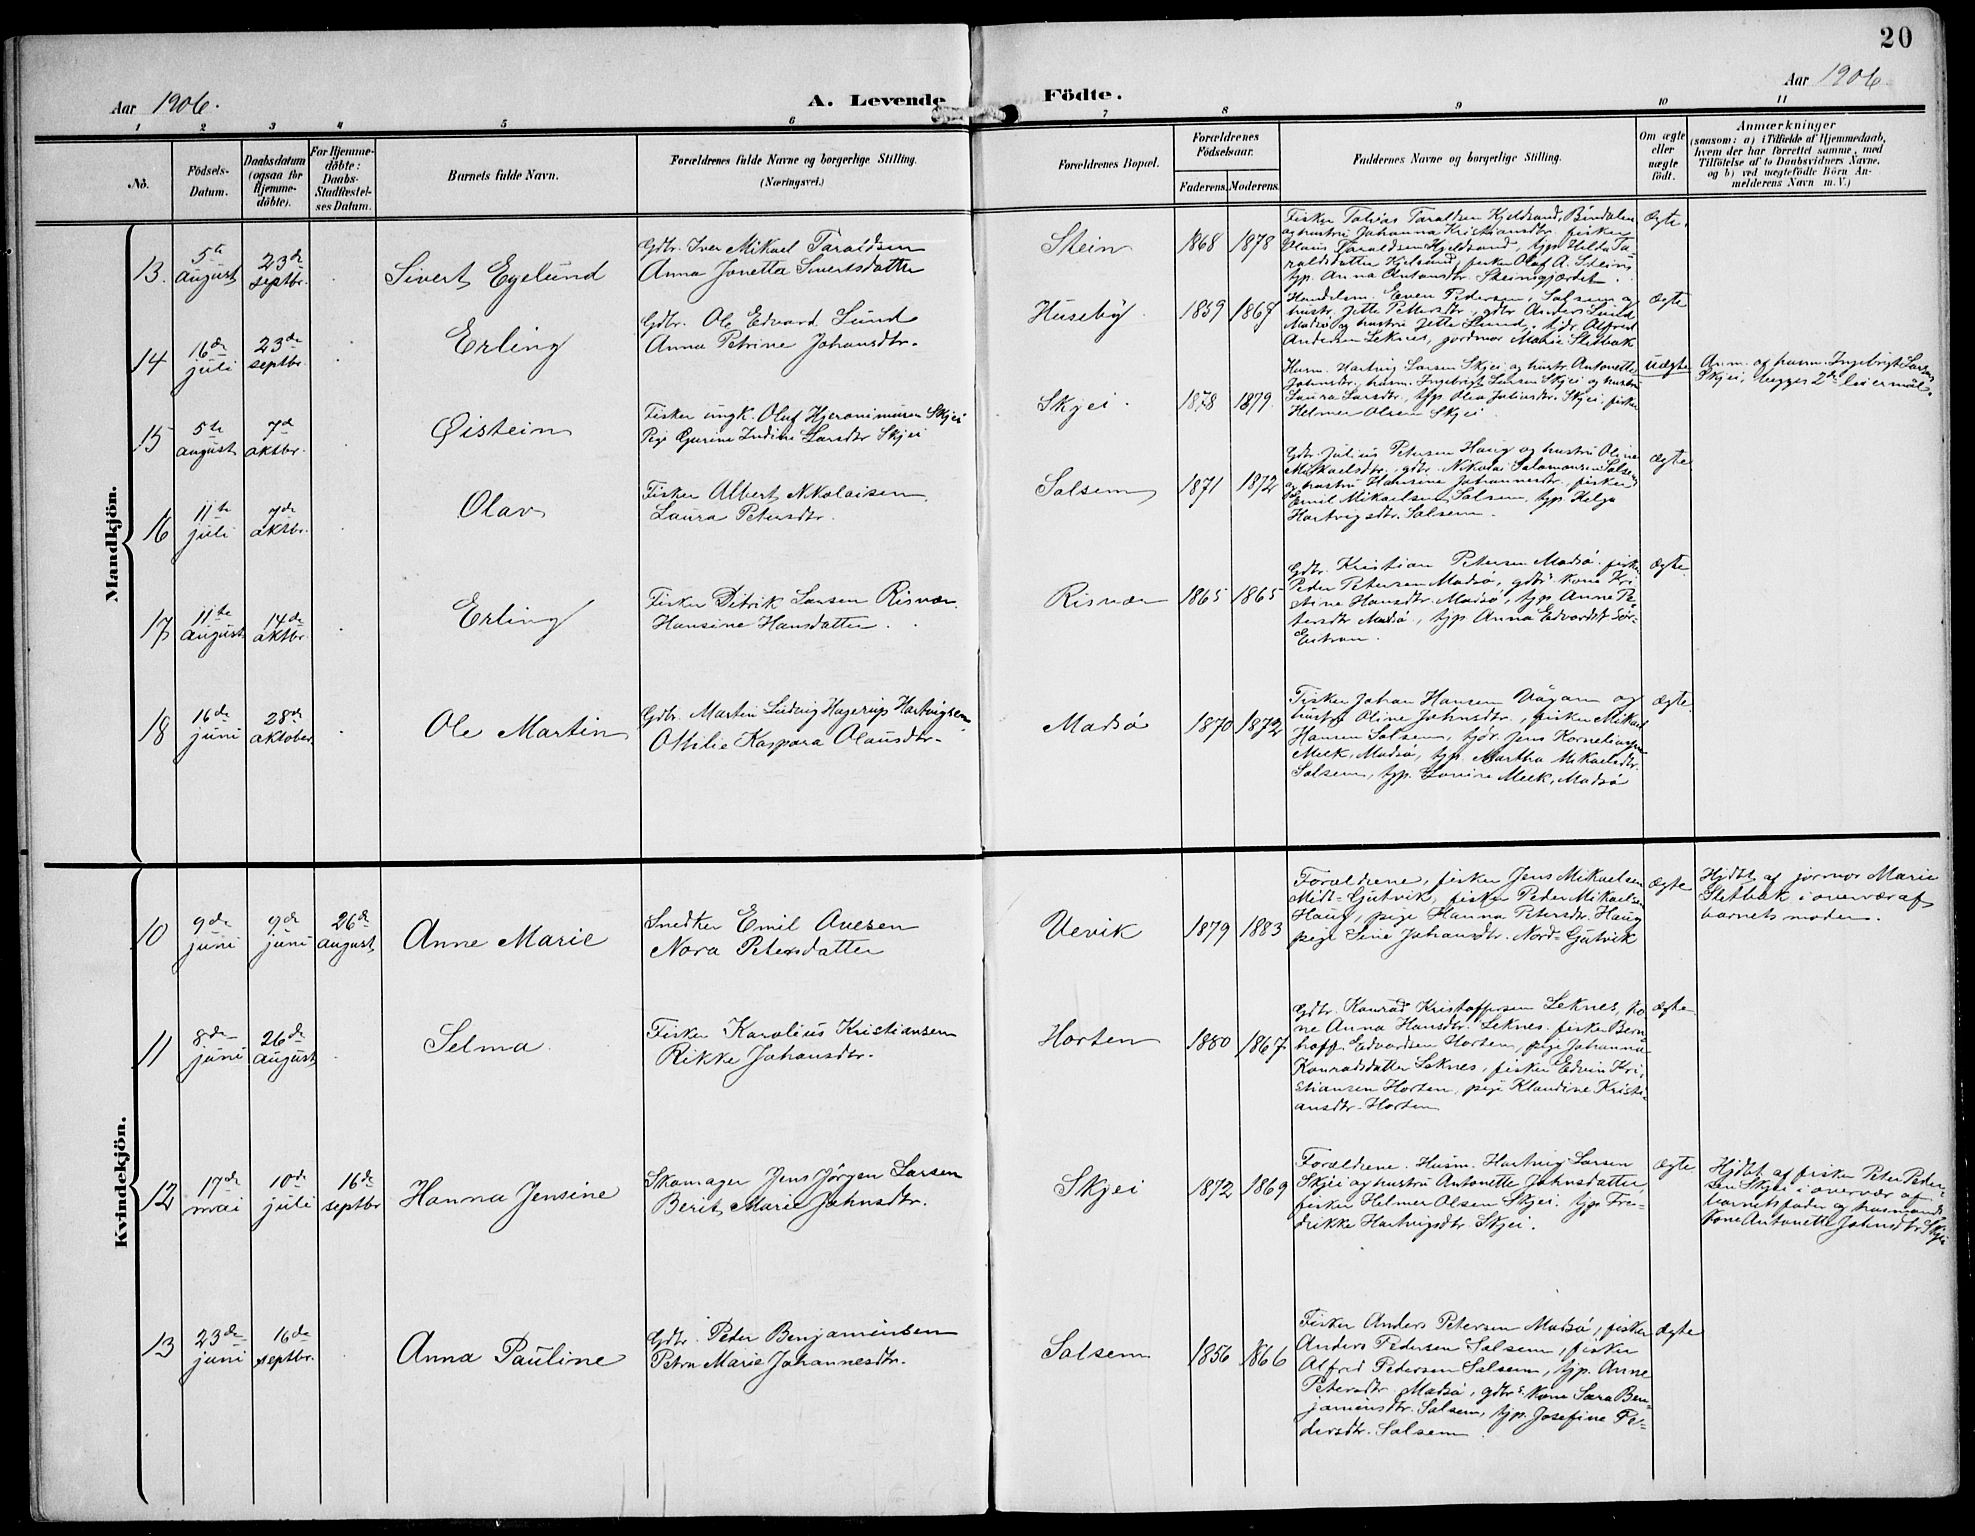 20
Aar 1906.
A. Levende Födte.
Aar 1906
1 2 3 4 5 6 7 8 9 10 11
No.
Födsels-Datum.
Daabsdatum (ogsaa for Hjemme-döbte).
For Hjemme-döbte: Daabs-Stadfæstel-ses Datum.
Barnets fulde Navn.
Forældrenes fulde Navne og borgerlige Stilling.
(Næringsvei.)
Forældrenes Bopæl.
Forældrenes Födselsaar.
Faderens. Moderens.
Faddernes Navne og borgerlige Stilling.
Om ægte eller uægte födt.
Anmærkninger
(saasom: a) i Tilfælde af Hjemmedaab, hvem der har forrettet samme, med Tilföielse af to Daabsvidners Navne, og b) ved uægtefödte Börn An-melderens Navn m. V.)
Mandkjön.
13. 5te august 23de septbr. Sivert Egelund
Gdbr. Iver Mikael Taraldsen
Anna Jonetta Sivertsdatter
Stein 1868 1878
Fisker Tobias Taraldsen Kjeldsand, Bindalen
og hustru Johanna Kristiansdtr. fisker
Klaus Taraldsen Kjeldsand, tjp. Hilda Ta-
raldsdatter Kjelsand, fisker Olaf A. Stein,
tjp. Anna Antonsdtr. Steinsgjerdet.
ægte.
14 16de juli 23de septbr. Erling
Gdbr. Ole Edvard Lund
Anna Petrine Johansdtr.
Huseby 1859 1868
Handelsm. Even Pedersen, Salsem og
hustr. Jette Pettersdtr., gdbr. Anders Lund
Madsø og hustru Jette Lund, tjdr. Alfred
Andersen Leknes, jordmor Marie Sletbak
ægte
15 5te august 7de oktbr. Øistein
Fisker ungk. Oluf Hjeronimusen Skjei
Pige Gurine Indine Larsdtr Skjei
Skjei. 1878 1879
Husm. Hartvig Larsen Skjei og hustr. Antonette
Johnsdtr., husm. Ingebrigt Larsen Skjei og hustru
Laura Larsdtr., tjp. Olea Juliusdtr. Skjei, fisker
Helmer Olsen Skjei
uægte
An.m. og husm. Ingebrigt Larsen
Skjei, begges 2de leiermål.
16 11te juli 7de oktbr. Olav
Fisker Albert Nikolaisen
Laura Petersdtr.
Salsem 1871 1872
Gdbr. Julius Petersen Haug og hustru Oline
Mikkaelsdtr., gdbr. Nikolai Salamonsen Salsem
og hustru Hansine Johannesdtr. fisker
Emil Mikaelsen Salsem, tjp. Helga
Hartvigsdtr. Salsem.
ægte
17 11te august 14de oktbr. Erling
Fisker Ditrik Larsen Risvær.
Hansine Hansdatter.
Risvær 1865 1865
Gdbr. Kristian Petersen Madsø. fisker
Peder Petersen Madsø, gdbr. kone Kri-
stine Hansdtr. Madsø, tjp. Anne Pe-
tersdtr Madsø, tjp. Anna Edvardsdt Sør-
ægte
18 16de juni 28de oktober. Ole Martin
Gdbr. Martin Ludvig Hagerup Hartvigsen
Otilie Kaspara Olausdtr.
Madsø 1870 1872
Fisker Johan Hansen Vågan og
hustru Oline Johnsdtr., fisker Mikael
Hansen Salsem, tjdr. Jens Korneliusen
Meek, Madsø, tjp. Martha Mikaelsdtr.
Salsem, tjp. Lovise Meek, Madsø
ægte.
Kvindekjön.
10 9de juni 9de juni 26de august Anne Marie
Snedker Emil Avesen
Nora Petersdatter
Uevik 1879 1883
Forældrene, fisker Jens Mikaelsen
Midt-Gutvik, fisker Peder Mikaelsen
Haug, pige Hanna Petersdtr. Haug
pige Sine Johansdtr. Nord-Gutvik
ægte
Hjdbt. af jormor Marie
Sletbak i overvær af
barnets moder.
11 8de juni 26de august Selma
Fisker Karolius Kristiansen
Rikke Johansdtr.
Horten 1880 1867
Gdbr. Konrad Kristoffersen Leknes, ko-
ne Anna Hansdtr. Leknes. fisker Bern-
hoff Edvardsen Horten, pige Johanna
Konradsdatter Leknes, fisker Edvin Kri-
stiansen Horten, pige Klaudine Kristi-
ansdtr. Horten
ægte
12 17de mai 10de juli 16de septbr Hanna Jensine
Skomager Jens Jørgen Larsen
Berit Marie Johnsdtr.
Skjei 1872 1869
Forældrene. Husm. Hartvig Larsen
Skjei og hustru Antonette Johnsdatter,
fisker Helmer Olsen Skjei. tjp. Fre-
drikke Hartvigsdtr Skjei.
ægte
Hjdbt. af fisker Peter Peder-
sen Skjei i overvær af
barnets fader og husmands-
kone Antonette Johnsdtr. Skjei
13 23de juni 16de septbr. Anna Pauline
Gdbr. Peder Benjaminsen
Petra Marie Johannesdtr.
Salsem 1856 1866
Fisker Anders Petersen Madsø, fisker
Anders Pedersen Salsem, fisker
Alfred Pedersen Salsem, tjp. Anne
Petersdtr Madsø, gdbr. kone Sara Ben-
jaminsdtr. Salsem, tjp. Josefine Pe-
dersdtr. Salsem
ægte